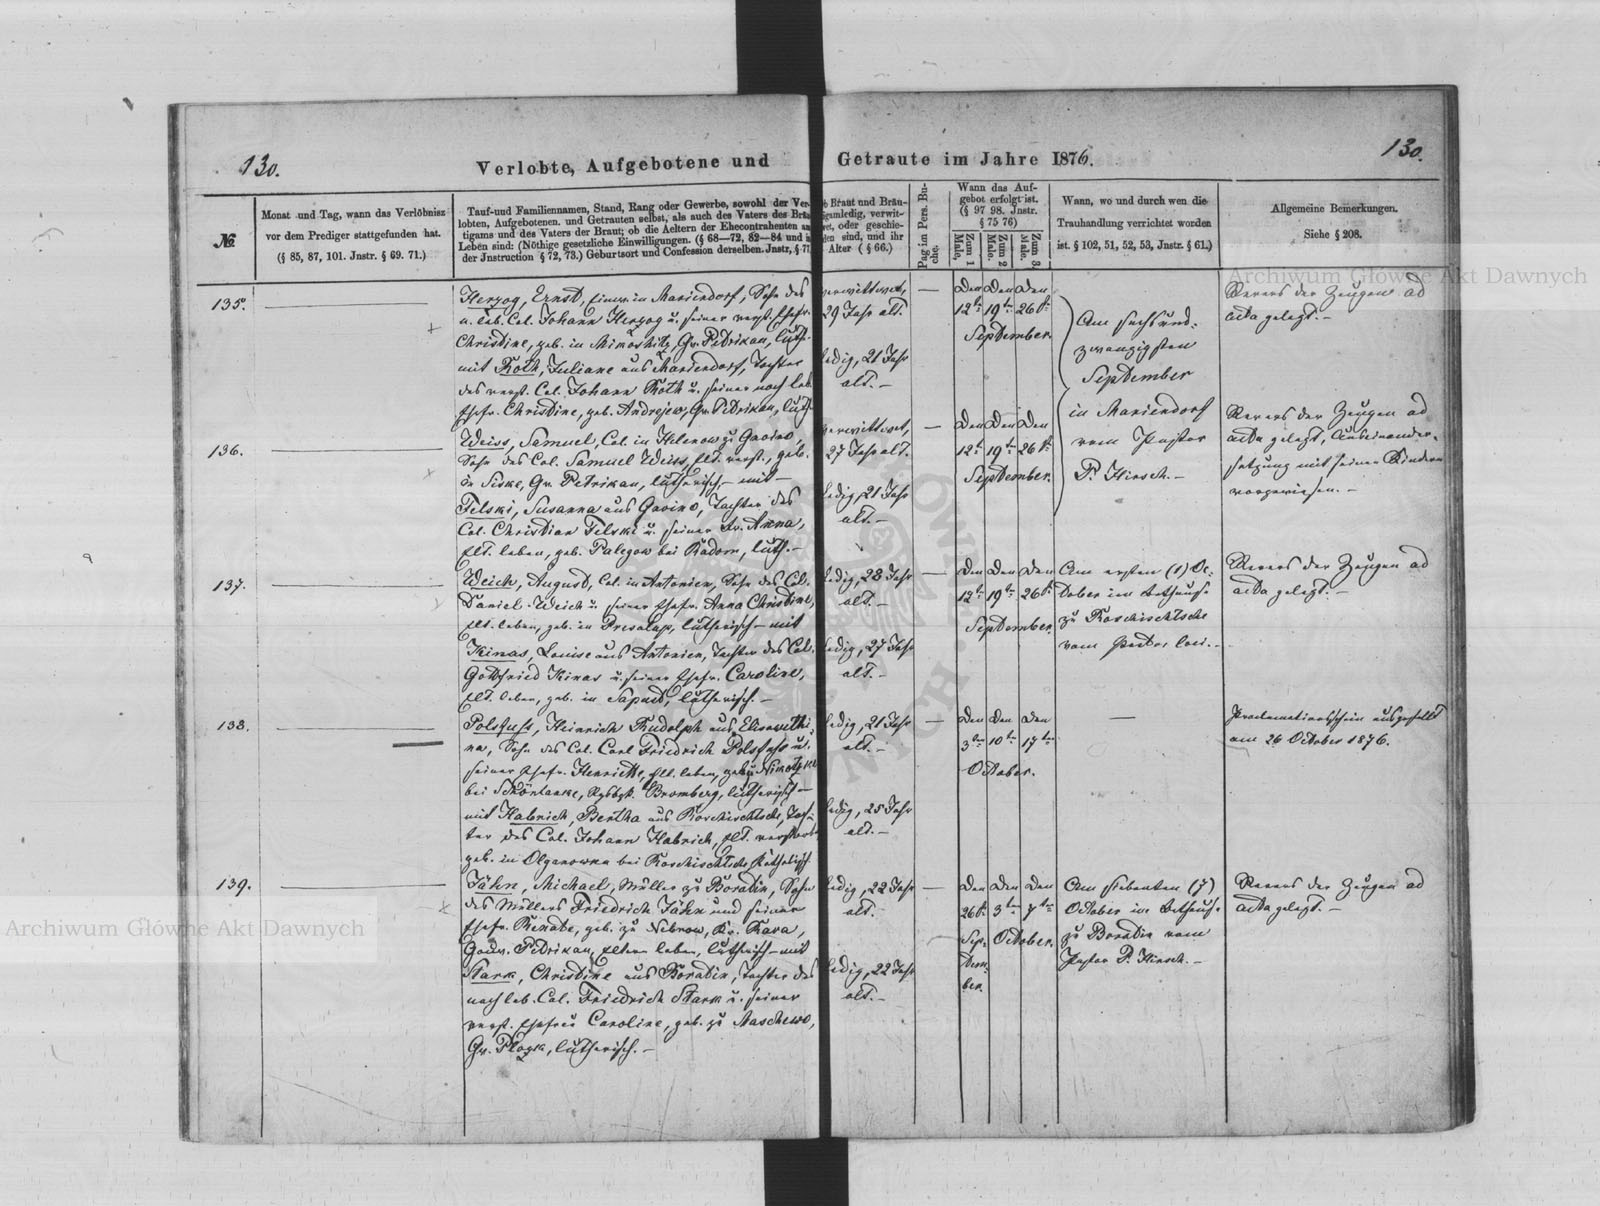 130.
Verlobte, Aufgebotene und
Getraute im Jahre 1876.
130.
№
Monat und Tag, wann das Verlöbnisz
vor dem Prediger stattgefunden hat.
(§ 85, 87, 101. Jnstr. § 69. 71.)
Tauf-und Familiennamen, Stand, Rang oder Gewerbe, sowohl der Ver-
lobten, Aufgebotenen, und Getrauten selbst, als auch des Vaters des Bräu
tigams und des Vaters der Braut; ob die Aeltern der Ehecontrahenten am
Leben sind: (Nöthige gesetzliche Einwilligungen. (§ 68—72, 82—84 und in
der Jnstruction § 72, 73.) Geburtsort und Confession derselben. Jnstr, § 71
b Braut und Bräu-
igam ledig, verwit-
wet, oder geschie-
den sind, und ihr
Alter (§ 66.)
Pag im Pers. Bu-
che.
Wann das Auf-
gebot erfolgt ist.
(§ 97 98. Jnstr.
§ 75 76)
Zum 1 Male,
Zum 2 Male.
Zum 3. Male.
Wann, wo und durch wen die
Trauhandlung verrichtet worden
ist. § 102, 51, 52, 53, Jnstr. § 61.)
Allgemeine Bemerkungen.
Siehe § 208.
Archiwum Główne Akt Dawnych
135.
Herzog, Ernst, Einw. in Mariendorf, Sohn des
n. leb. Col. Johann Herzog u. seiner verst. Ehefr.
Christine, geb. in Gv. Petrikau, luth.
mit Roth, Juliane aus Mariendorf, Tochter
des verst. Col. Johann Roth u. seiner noch leb.
Ehefr. Christine, geb. Andrejew, Gv. Petrikau, luth.
verwittwet,
29 Jahr alt.
ledig, 21 Jahr
alt. —
Den Den Den
12t. 19te 26st.
September.
Am sechsund-
zwanzigsten
September
in Mariendorf
vom Pastor
P. Hirsch. —
Revers der Zeugen ad
acta gelegt. —
136.
Weiss, Samuel, Col. in Helenow zu Gavino,
Sohn des Col. Samuel Weiss, Elt. verst., geb.
in Siske, Gv. Petrikau, lutherisch — mit —
Felski, Susanna aus Gavino, Tochter des
Col. Christian Felski u. seiner Fr. Anna,
Elt. leben, geb. Palegow bei Radom, luth. —
verwittwet,
27 Jahr alt.
ledig, 21 Jahr
alt. —
Den Den Den
12t. 19te 26st.
September.
Revers der Zeugen ad
acta gelegt, Auseinander-
setzung mit seinen Kindern
vorgewiesen. —
137.
Weich, August, Col. in Antonien, Sohn des Col.
Daniel Weich u. seiner Ehefr. Anna Christine,
Elt. leben, geb. in lutherisch — mit
Kinas, Louise aus Antonien, Tochter des Col.
Gottfried Kinas u. seiner Ehefr. Caroline,
Elt. leben, geb. in lutherisch. —
ledig, 28 Jahr
alt. —
ledig, 27 Jahr
alt. —
Den Den Den
12te 19te 26st.
September.
Am ersten (1) Oc-
tober im Bethause
zu Roschischtsche
vom Pastor loci. —
Revers der Zeugen ad
acta gelegt. —
138.
Polsfuss, Heinrich Rudolph aus Elisawethi-
na, Sohn des Col. Carl Friedrich Polsfuss u.
seiner Ehefr. Henriette, Elt. leben, geb.
bei Schönlanke, Rgbzk. Bromberg, lutherisch —
mit Habrich, Bertha aus Roschischtsche, Toch-
ter des Col. Johann Habrich, Elt. verstorb.
geb. in Olganowka bei Roschischtsche, katholisch.
ledig, 21 Jahr
alt. —
ledig, 25 Jahr
alt. —
Den Den Den
3ten 10te 17ten
October.
Proclamationsschein ausgestellt
am 26 October 1876.
139.
Jähn, Michael, Müller zu Boratin, Sohn
des Müllers Friedrich Jähn und seiner
Ehefr. Renate, geb. zu Nebrow, Kr. Rava,
Gouv. Petrikau, Eltern leben, lutherisch — mit
Stark, Christine aus Boratin, Tochter des
noch leb. Col. Friedrich Stark u. seiner
verst. Ehefrau Caroline, geb. zu Maschewo,
Gv. Plozk, lutherisch. —
ledig, 22 Jahr
alt. —
ledig, 22 Jahr
alt. —
Den Den Den
26st. 3te 7ten
Sep- October.
tem-
ber.
Am siebenten (7)
October im Bethause
zu Boratin vom
Pastor P. Hirsch. —
Revers der Zeugen ad
acta gelegt. —
Archiwum Główne Akt Dawnych